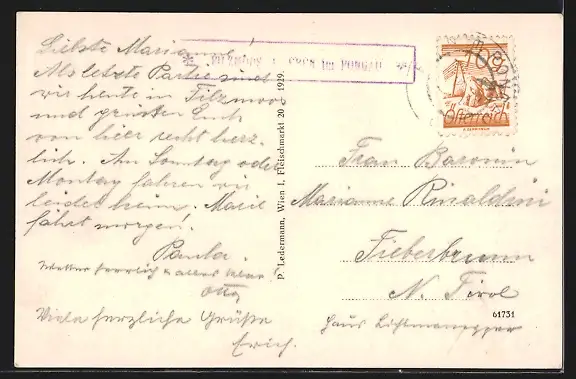 Liebste Marianne!
Als letzte Partie sind
wir heute in Filzmoos
und grüßen Euch
von hier recht herz-
lich. Am Sonntag oder
Montag fahren wir
leider heim. Marie
fährt morgen!
Paula.
Wetter herrlich & alles klar
Otto
Viele herzliche Grüße
Erich.
P. Ledermann, Wien I. Fleischmarkt 20 1929.
im PONGAU
10 g
Österreich
Frau Baronin
Marianne Rinaldini
Fieberbrunn
N. Tirol
Haus
61731